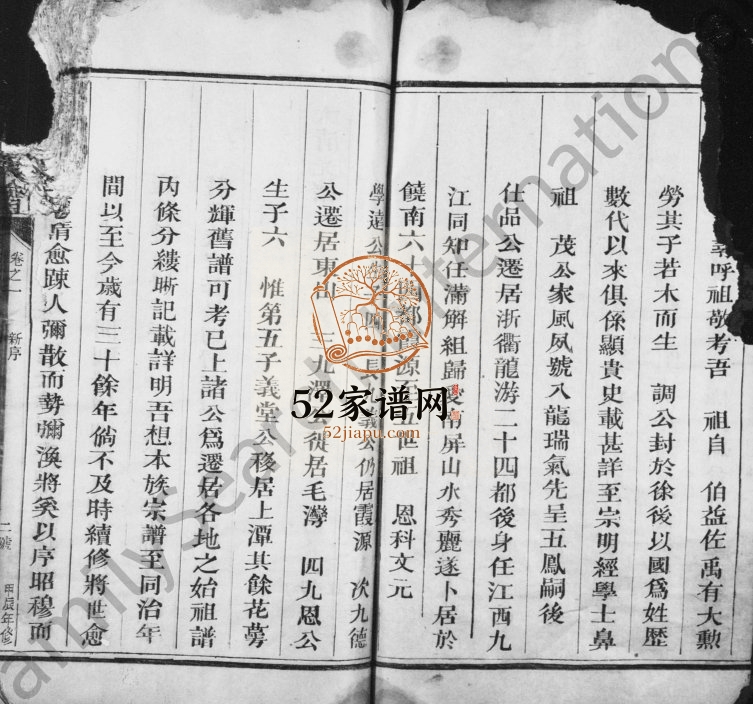 呼祖敬考吾　祖自　伯益佐禹有大勲
勞其子若木而生　調公封於徐後以國爲姓歷
數代以來俱係顯貴史載甚詳至宗明經學士鼻
祖　茂公家風夙號八龍瑞氣先呈五鳳嗣後
仕品公遷居浙衢龍游二十四都後身任江西九
江同知任滿解組歸愛南屏山水秀麗遂卜居於
饒南六十都霞源至五世祖　恩科文元
學遠公　義公仍居霞源　次九德
公遷居東　三九潭公徙居毛灣　四九恩公
生子六　惟第五子義堂公移居上潭其餘花萼
分輝舊譜可考已上諸公爲遷居各地之始祖譜
內條分縷晰記載詳明吾想本族宗譜至同治年
間以至今歲有三十餘年倘不及時續修將世愈
愈踈人彌散而勢彌渙將奚以序昭穆而
卷之一　新序
二號
甲辰年修
52家谱网
52jiapu.com
FamilySearch International